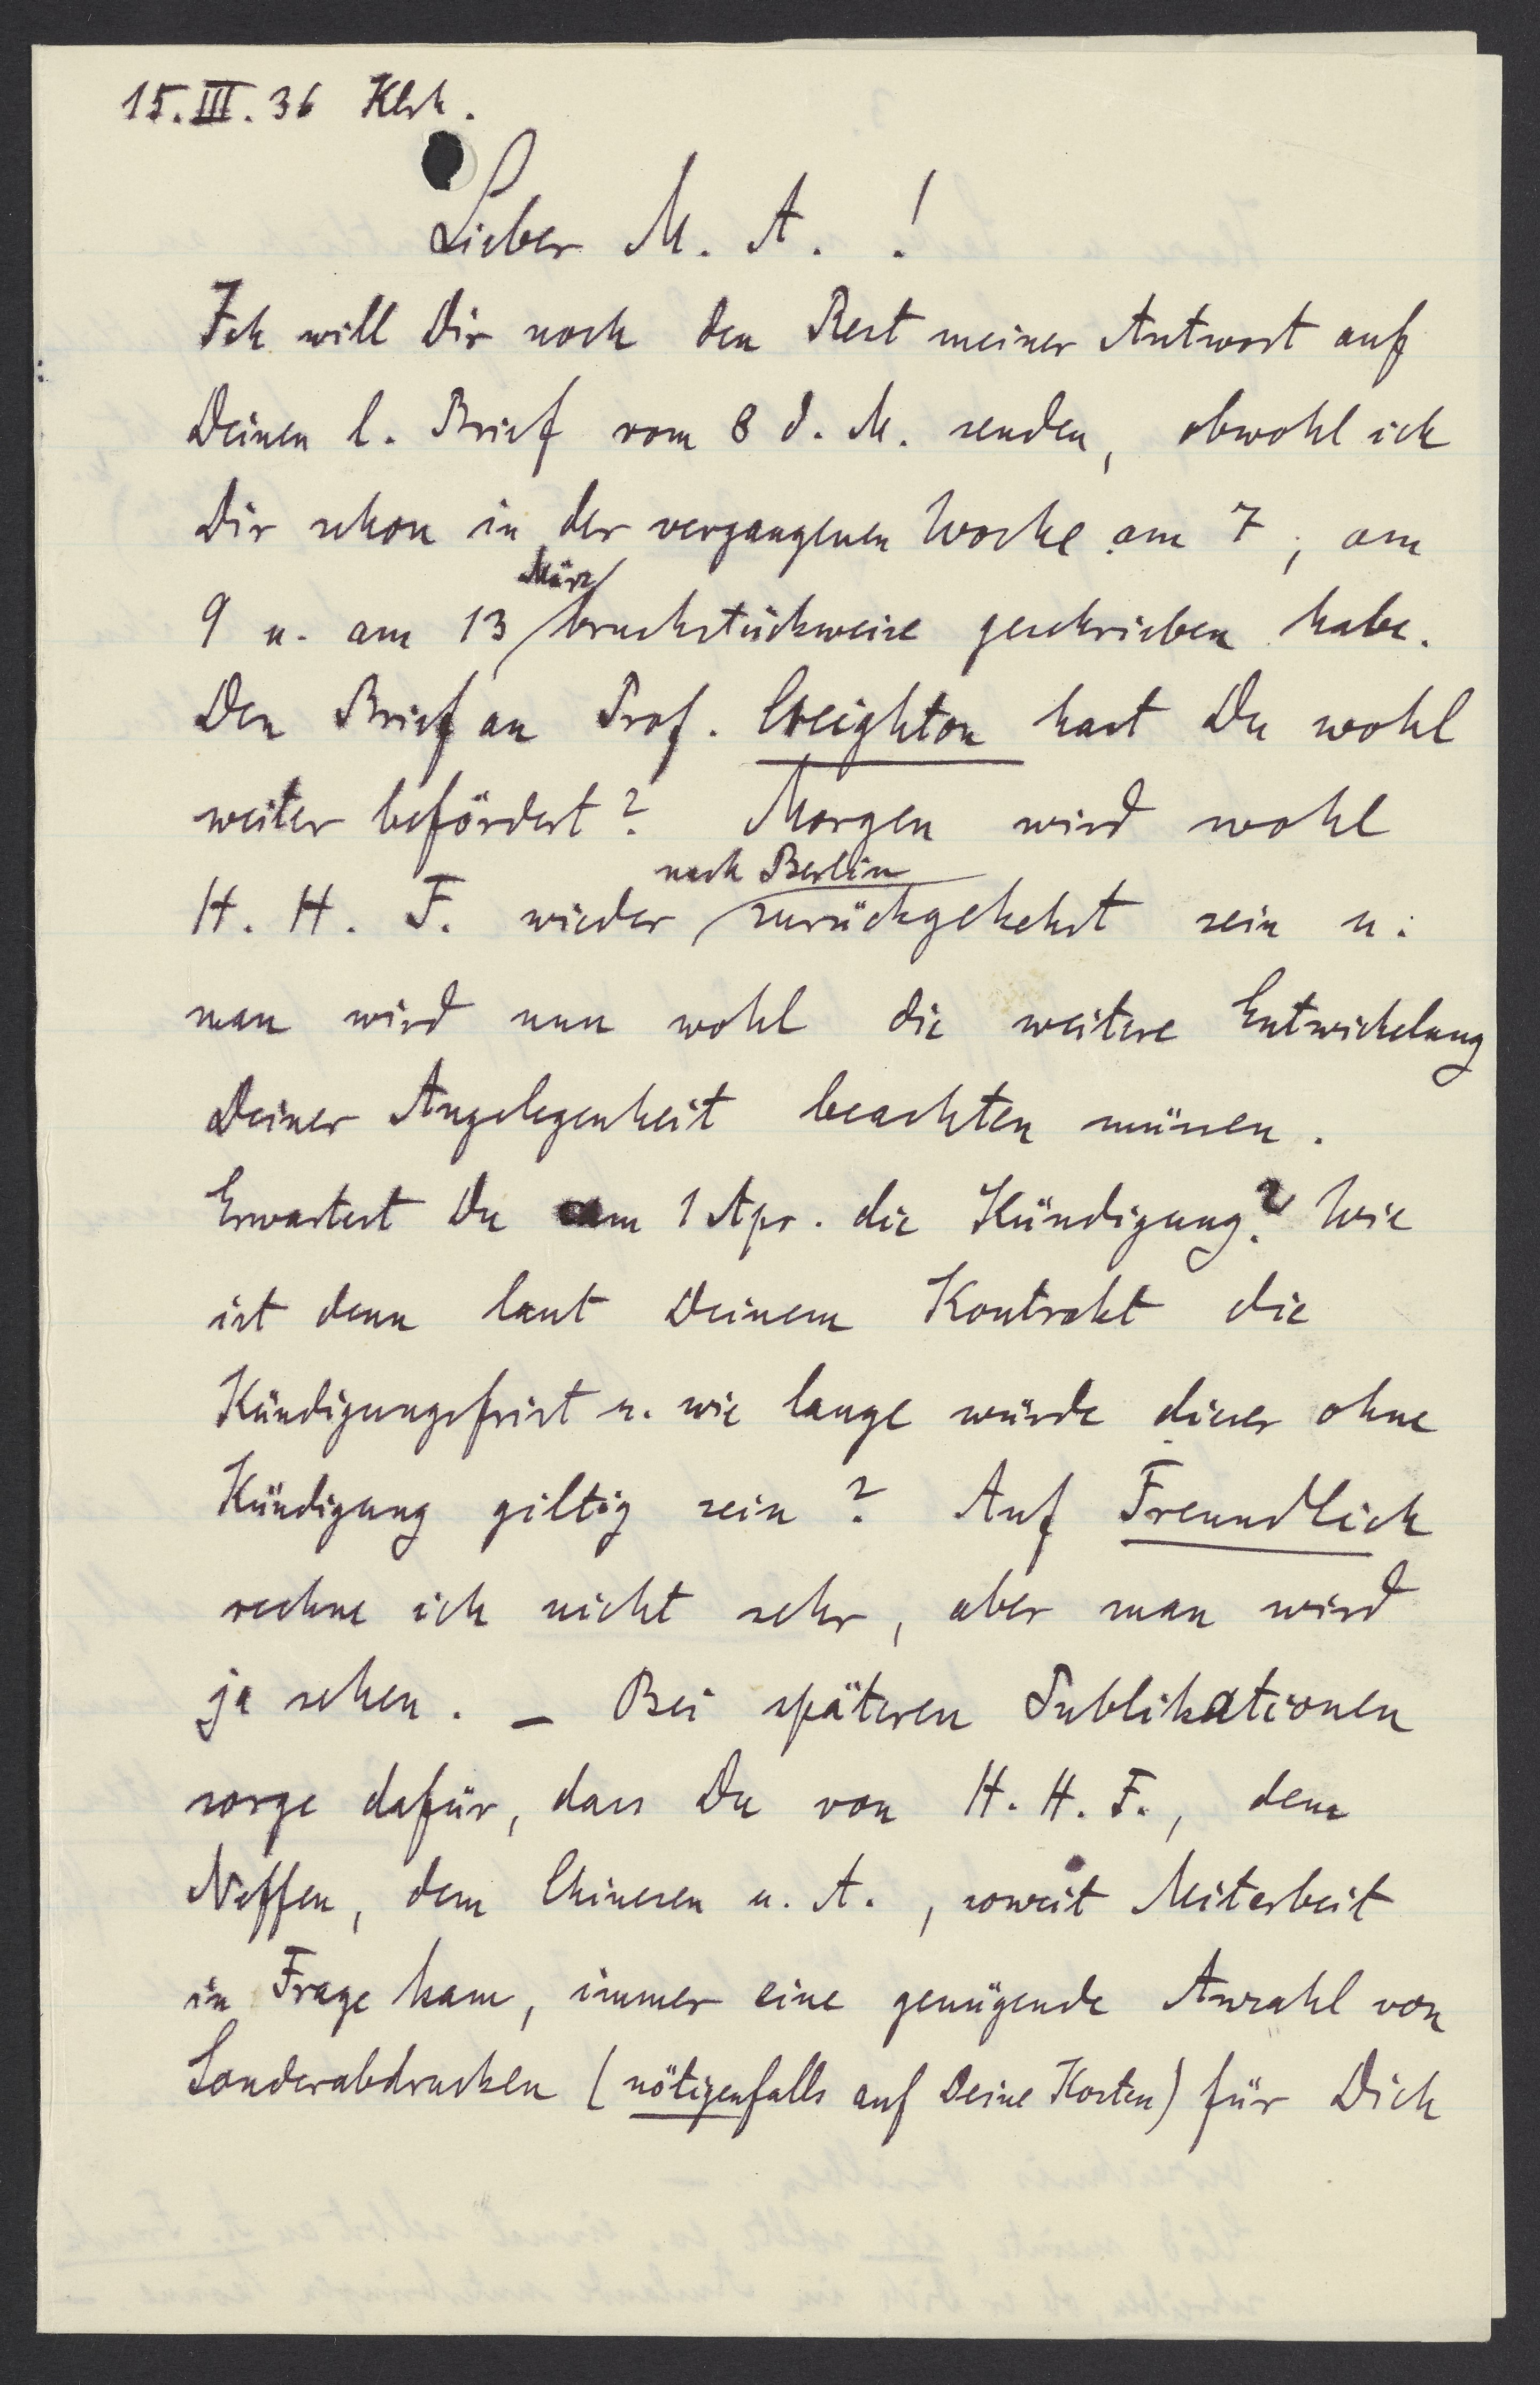 15.III.36 Klsh.
Lieber M. A. !
Ich will Dir noch den Rest meiner Antwort auf
Deinen l. Brief vom 8 d. M. senden, obwohl ich
Dir schon in der vergangenen Woche am 7, am
März
9 u. am 13 bruchstückweise geschrieben habe.
Den Brief an Prof. Creighton hast Du wohl
weiter befördert? Morgen wird wohl
nach Berlin
H. H. F. wieder zurückgekehrt sein u.
man wird nun wohl die weitere Entwickelung
Deiner Angelegenheit beachten müssen.
Erwartest Du am 1 Apr. die Kündigung? Wie
ist denn laut Deinem Kontrakt die
Kündigungsfrist u. wie lange würde dieser ohne
Kündigung giltig sein? Auf Freundlich
rechne ich nicht sehr, aber man wird
ja sehen. – Bei späteren Publikationen
sorge dafür, dass Du von H. H. F., dem
Neffen, dem Chinesen u. A., soweit Mitarbeit
in Frage kam, immer eine genügende Anzahl von
Sonderabdrucken (nötigenfalls auf Deine Kosten) für Dich